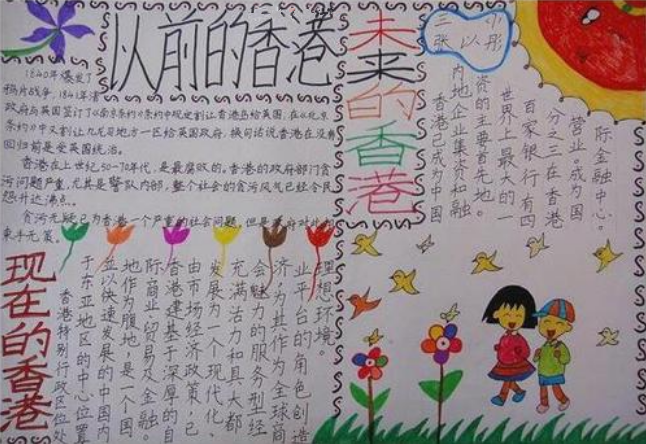 从前的香港
1840年爆发了
鸦片战争,1841年清
政府与英国签订了《南京条约》条约中规定割让香港岛给英国,在《北京
条约》中又割让九龙司地方一区给英国政府,换句话说香港在没有
回归前是受英国统治。
香港在上世纪50-70年代,是最腐败的。香港的政府部门贪
污问题严重,尤其是警队内部,整个社会的贪污风气已经令民
怨升达沸点。
贪污无疑已为香港一个严重的社会问题,但是政府对此
束手无策。
未来的香港
三 小
张 以 彤
香港已成为中国
内地企业集资和融
资的主要首先地。
世界上最大的一
百家银行有四
分之三在香港
营业。成为国
际金融中心。
现在的香港
香港特别行政区位处
于东亚地区的中心位置
並以快速发展的中国内
地作为腹地,是一个国
际商业贸易及金融。
香港建基于深厚的自
由市场经济政策;已
发展为一个现代化、
充满活力和具大都
会魅力的服务型经
济,为其作为全球商
业平台的角色创造
理想环境。